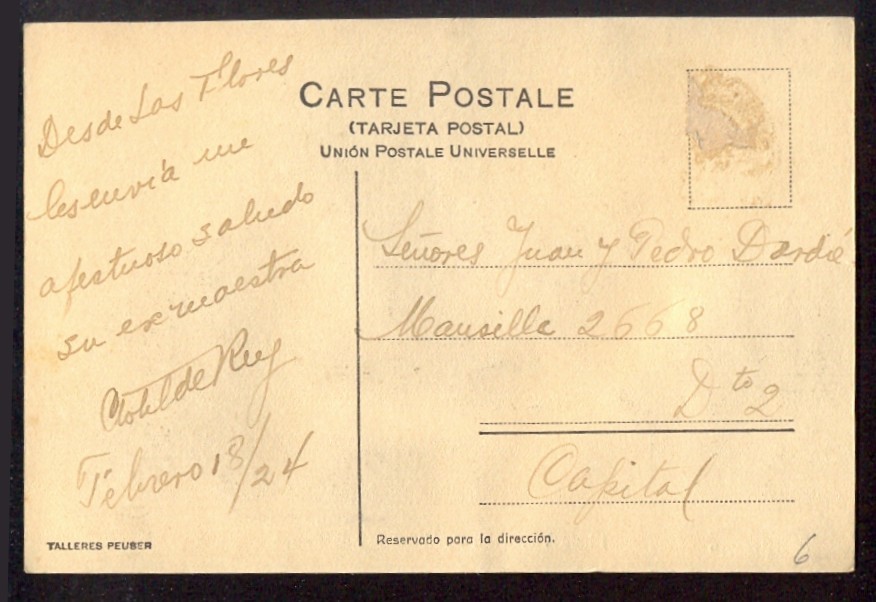 CARTE POSTALE
(TARJETA POSTAL)
UNIÓN POSTALE UNIVERSELLE
Desde Las Flores
les envía un
afectuoso saludo
su ex maestra
Clotilde Rey
Febrero 18/24
Señores Juan y Pedro Dardié
Mansilla 2668
Dto 2
Capital
TALLERES PEUSER
Reservado para la dirección.
6